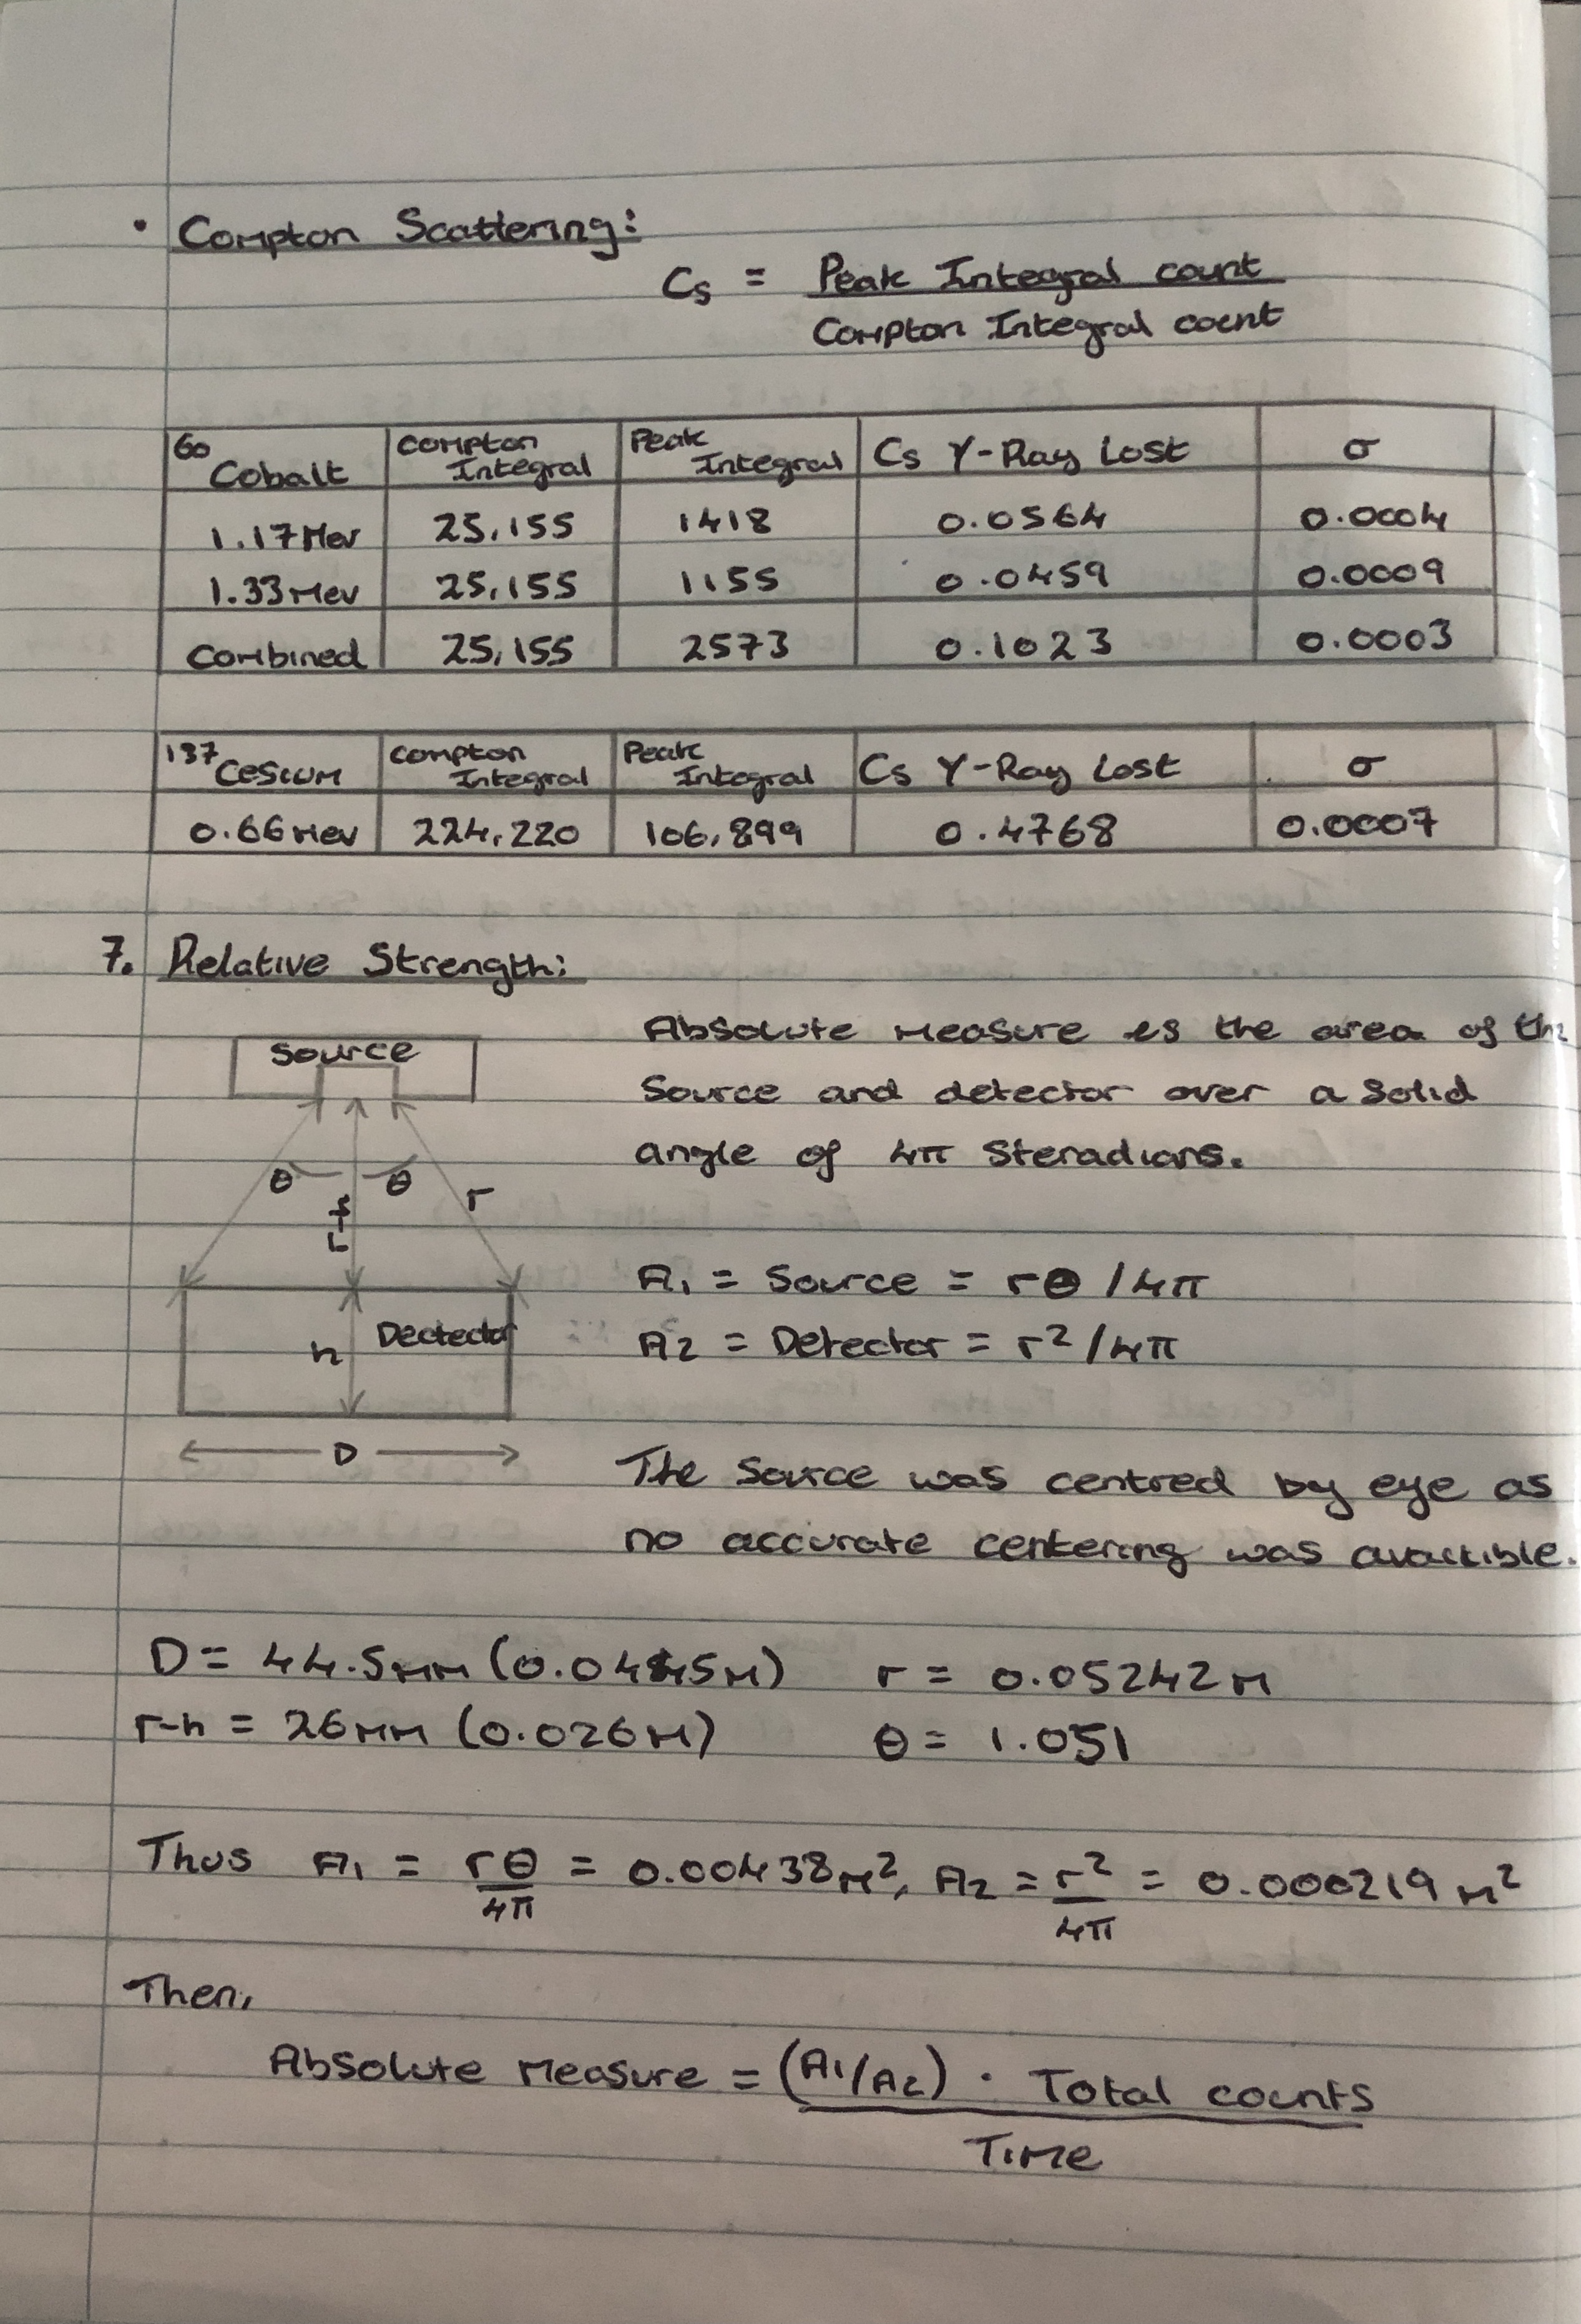 • Compton Scattering:
Cs = Peak Integral count
Compton Integral count
60 Cobalt | Compton Integral | Peak Integral | Cs γ-Ray Lost | σ
1.17Mev | 25,155 | 1418 | 0.0564 | 0.0004
1.33Mev | 25,155 | 1155 | 0.0459 | 0.0009
Combined | 25,155 | 2573 | 0.1023 | 0.0003
137 Cesium | Compton Integral | Peak Integral | Cs γ-Ray Lost | σ
0.66Mev | 224,220 | 106,899 | 0.4768 | 0.0007
7. Relative Strength:
Source
Absolute Measure is the area of the
Source and detector over a Solid
angle of 4π Steradians.
θ θ r
A1 = Source = rθ /4π
h Dectector
A2 = Detector = r²/4π
D
The Source was centred by eye as
no accurate centering was availible.
D = 44.5mm (0.0445m) r = 0.05242m
r-h = 26mm (0.026m) θ = 1.051
Thus A1 = rθ/4π = 0.00438m², A2 = r²/4π = 0.000219m²
Then,
Absolute Measure = (A1/A2) · Total counts
Time